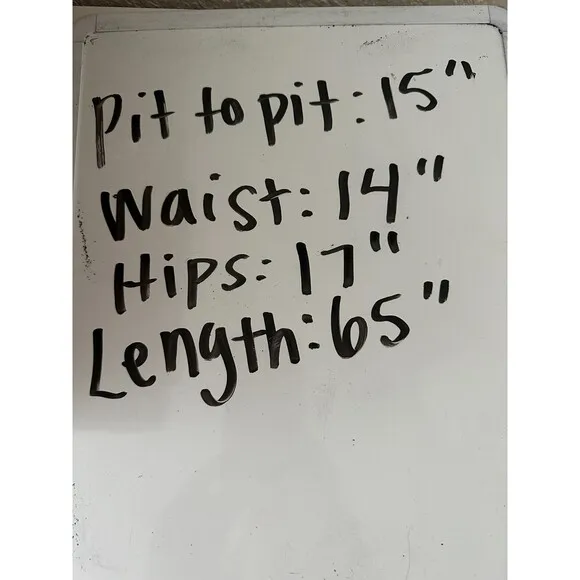 Pit to pit: 15"
Waist: 14"
Hips: 17"
Length: 65"